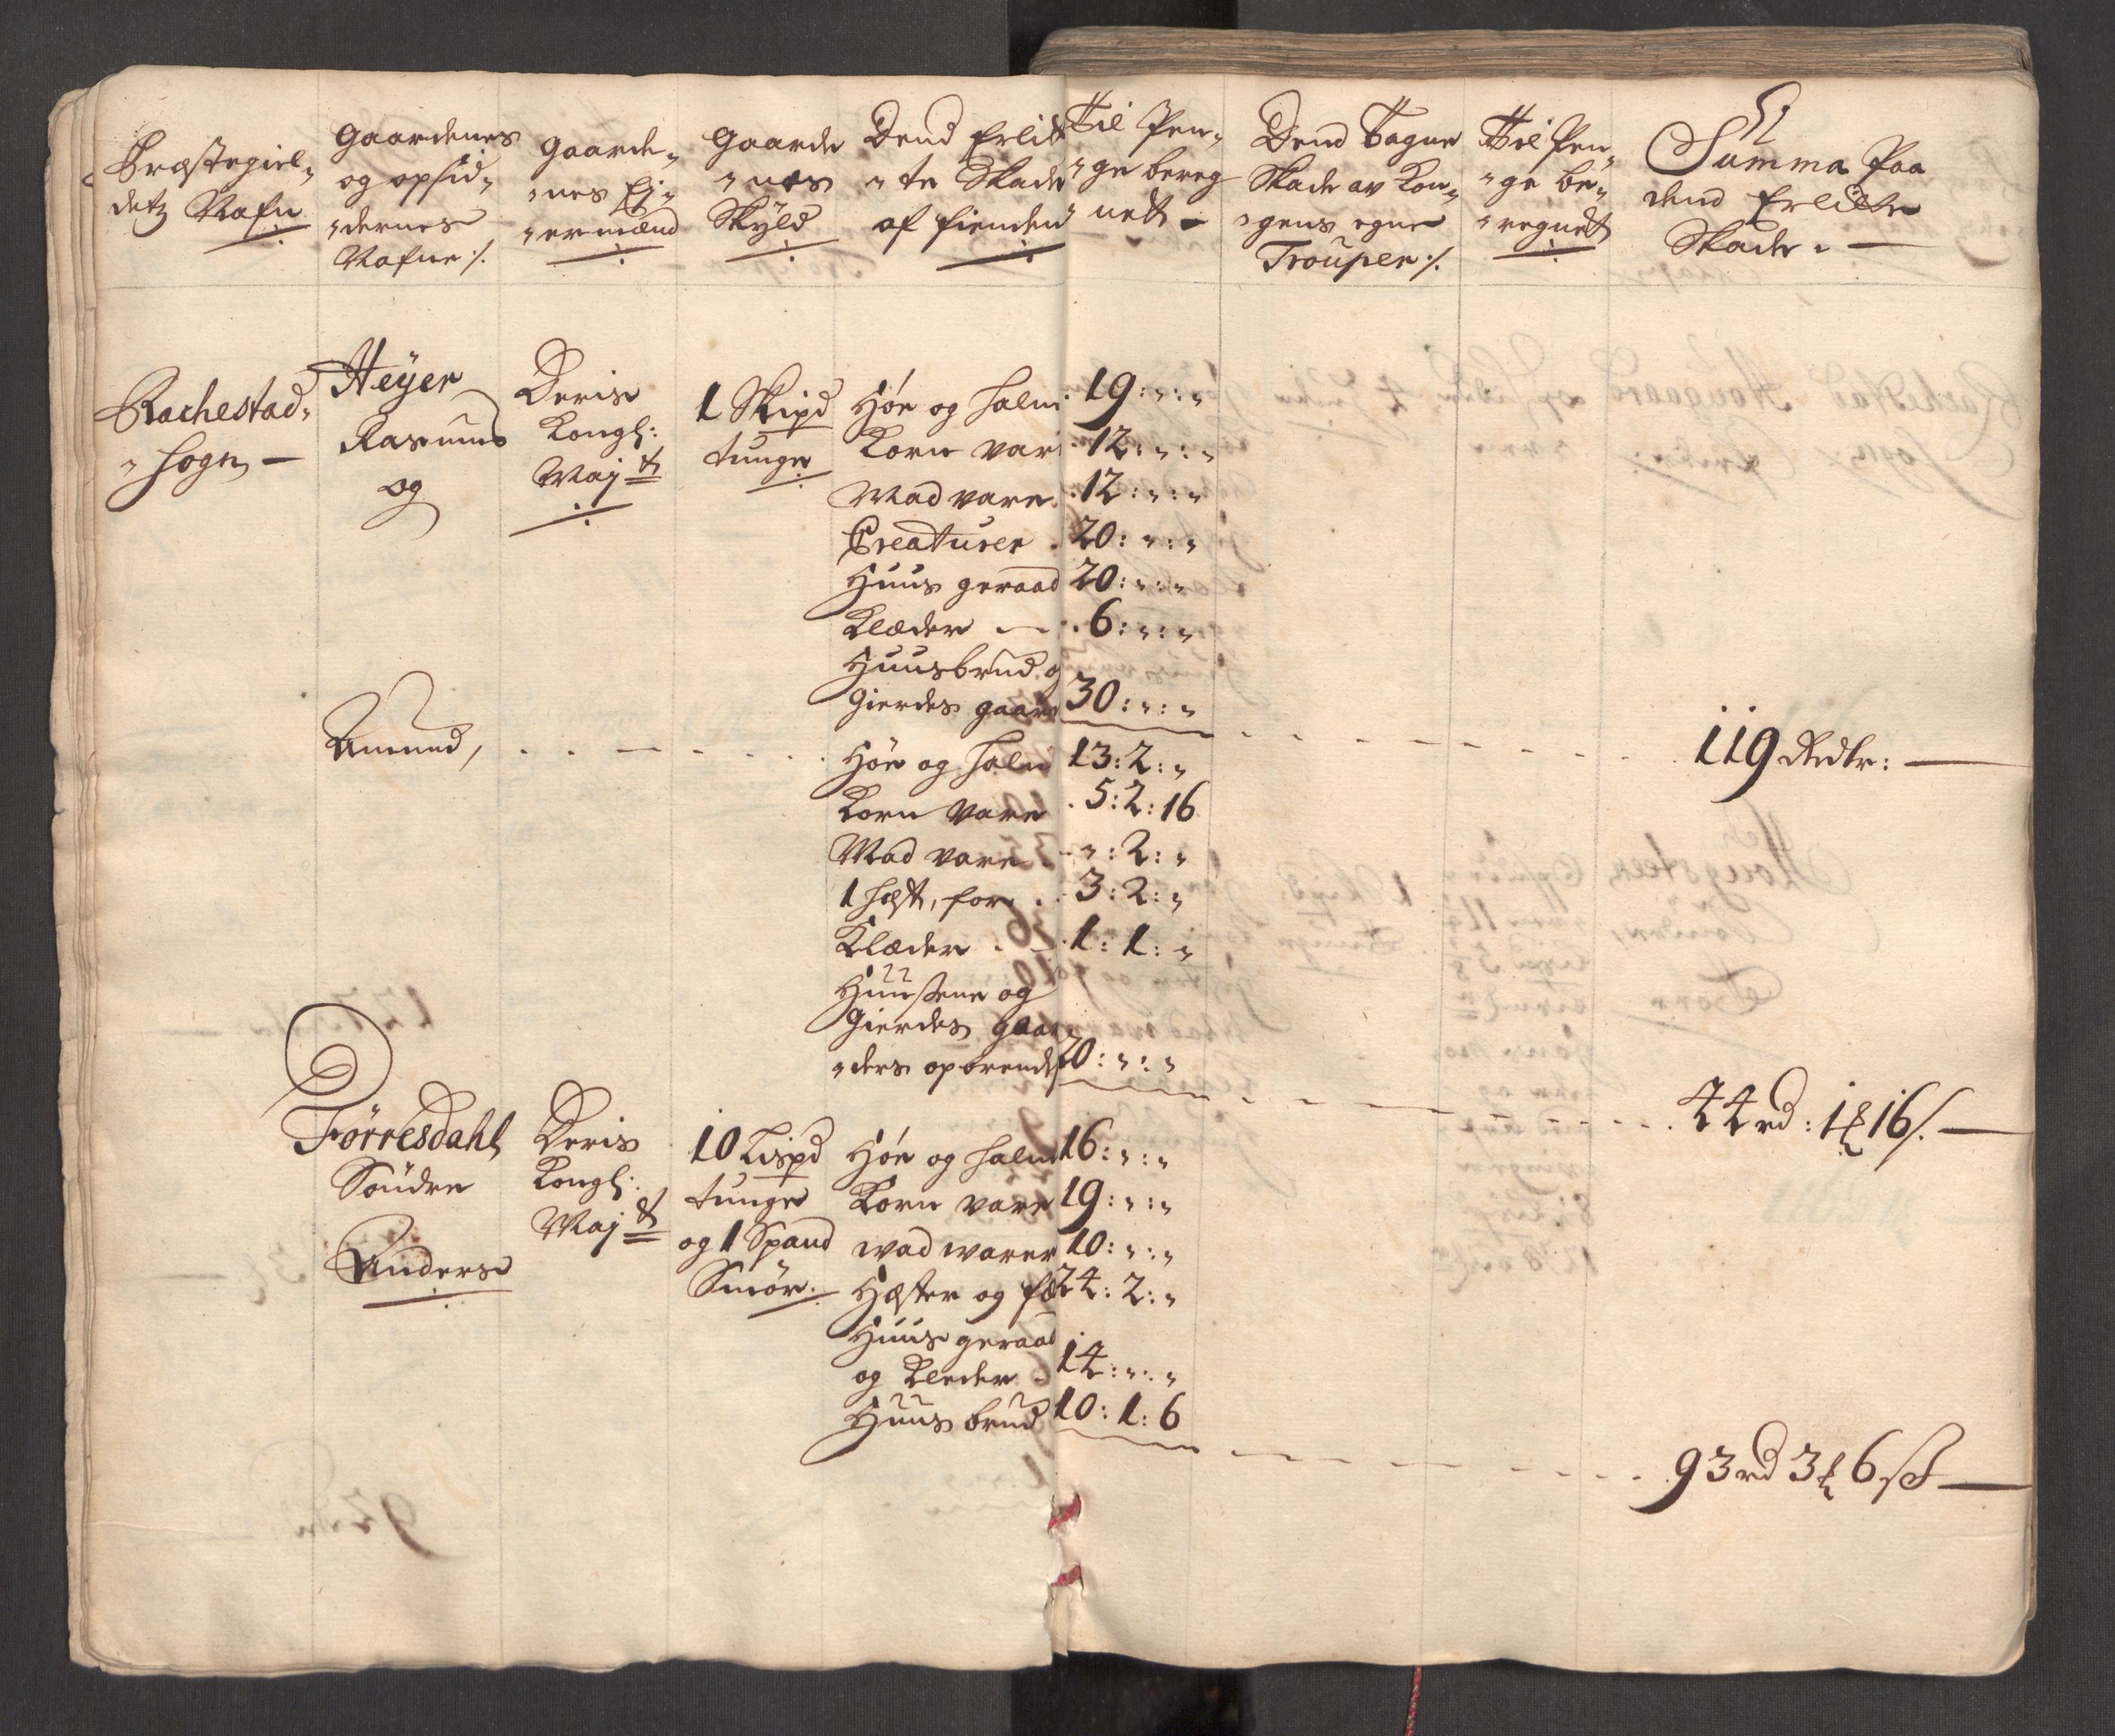 Præstegiel„
detz Nafn
Gaardenes
og opsid„
„dernes
Nafne ./.
Gaarde„
„nes Ej„
„ermænd
Gaarde
„nes
Skyld
Dend Erlidt
„te Skade
af fienden
Til Pen„
„ge bereg
„nedt -
Dend Tagne
Skade av Kon„
„gens egne
Trouper ./.
Til Pen„
„ge be„
„regnet
Summa Paa
dend Erlidte
Skade. —
Rachestad„
„sogn —
Heÿer
Rasmus
og
Deris
Kongl:
Maj tt
1 Skipd
tunge
Høe og halm 19:„:„
Korn vare 12:„:„
Mad vare 12:„:„
Creaturer 20:„:„
Huus geraad 20:„:„
Klæder — 6:„:„
Huusbrud og
Gierdes gaard 30:„:„
119 Rdlr: —
Amund,
Høe og halm 13:2:„
Korn vare 5:2:16
Mad vare „:2:„
1 hest, for 3:2:„
Klæder 1:1:„
Huusene og
Gierdes gaar„
„ders opbrende 20:„:„
44 rd: 1 ℔ 16 /. —
Törresdahl
Söndre
Anders
Deris
Kongl:
Maj tt
10 Lispd
tunge
og 1 Spand
Smör.
Høe og halm 16:„:„
Korn vare 19:„:„
mad warer 10:„:„
Hester og fæ 24:2:„
Huus geraad
og Kleder 14:„:„
Huus brud 10:1:6
93 rd 3 ℔ 6 ß —